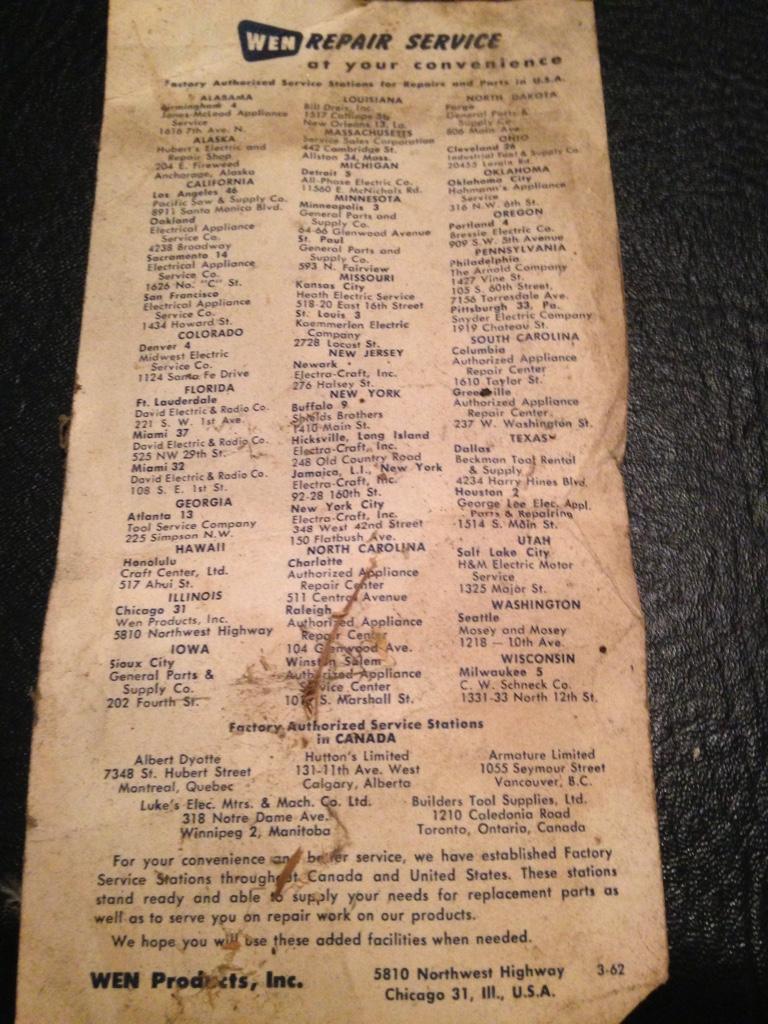 WEN REPAIR SERVICE
at your convenience
Factory Authorized Service Stations for Repairs and Parts in U.S.A.
ALABAMA
Birmingham 4
Jones-McLeod Appliance
Service
1616 7th Ave. N.
ALASKA
Hubert's Electric and
Repair Shop
204 E. Fireweed
Anchorage, Alaska
CALIFORNIA
Los Angeles 46
Pacific Saw & Supply Co.
8911 Santa Monica Blvd.
Oakland
Electrical Appliance
Service Co.
4238 Broadway
Sacramento 14
Electrical Appliance
Service Co.
1626 No. "C" St.
San Francisco
Electrical Appliance
Service Co.
1434 Howard St.
COLORADO
Denver 4
Midwest Electric
Service Co.
1124 Santa Fe Drive
FLORIDA
Ft. Lauderdale
David Electric & Radio Co.
221 S. W. 1st Ave.
Miami 37
David Electric & Radio Co.
525 NW 29th St.
Miami 32
David Electric & Radio Co.
108 S. E. 1st St.
GEORGIA
Atlanta 13
Tool Service Company
225 Simpson N.W.
HAWAII
Honolulu
Craft Center, Ltd.
517 Ahui St.
ILLINOIS
Chicago 31
Wen Products, Inc.
5810 Northwest Highway
IOWA
Sioux City
General Parts &
Supply Co.
202 Fourth St.
LOUISIANA
Bill Dreis, Inc.
1517 Calliope St.
New Orleans 13, La.
MASSACHUSETTS
Service Sales Corporation
442 Cambridge St.
Allston 34, Mass.
MICHIGAN
Detroit 5
All-Phase Electric Co.
11560 E. McNichols Rd.
MINNESOTA
Minneapolis 3
General Parts and
Supply Co.
64-66 Glenwood Avenue
St. Paul
General Parts and
Supply Co.
593 N. Fairview
MISSOURI
Kansas City
Heath Electric Service
518-20 East 16th Street
St. Louis 3
Kaemmerlen Electric
Company
2728 Locust St.
NEW JERSEY
Newark
Electra-Craft, Inc.
276 Halsey St.
NEW YORK
Buffalo 9
Shields Brothers
1410 Main St.
Hicksville, Long Island
Electra-Craft, Inc.
248 Old Country Road
Jamaica, L.I., New York
Electra-Craft, Inc.
92-28 160th St.
New York City
Electra-Craft, Inc.
348 West 42nd Street
150 Flatbush Ave.
NORTH CAROLINA
Charlotte
Authorized Appliance
Repair Center
511 Central Avenue
Raleigh
Authorized Appliance
Repair Center
104 Glenwood Ave.
Winston Salem
Authorized Appliance
Service Center
S. Marshall St.
NORTH DAKOTA
Fargo
General Parts &
Supply Co.
806 Main Ave.
OHIO
Cleveland 26
Industrial Tool & Supply Co.
20455 Lorain Rd.
OKLAHOMA
Oklahoma City
Hohmann's Appliance
Service
316 N.W. 6th St.
OREGON
Portland 4
Bressie Electric Co.
909 S.W. 5th Avenue
PENNSYLVANIA
Philadelphia
The Arnold Company
1427 Vine St.
105 S. 60th Street
7156 Torresdale Ave.
Pittsburgh 33, Pa.
Snyder Electric Company
1919 Chateau St.
SOUTH CAROLINA
Columbia
Authorized Appliance
Repair Center
1610 Taylor St.
Greenville
Authorized Appliance
Repair Center
237 W. Washington St.
TEXAS
Dallas
Beckman Tool Rental
& Supply
4234 Harry Hines Blvd.
Houston 2
George Lee Elec. Appl.
Parts & Repairing
1514 S. Main St.
UTAH
Salt Lake City
H&M Electric Motor
Service
1325 Major St.
WASHINGTON
Seattle
Mosey and Mosey
1218 — 10th Ave.
WISCONSIN
Milwaukee 5
C. W. Schneck Co.
1331-33 North 12th St.
Factory Authorized Service Stations
in CANADA
Albert Dyotte
7348 St. Hubert Street
Montreal, Quebec
Hutton's Limited
131-11th Ave. West
Calgary, Alberta
Armature Limited
1055 Seymour Street
Vancouver, B.C.
Luke's Elec. Mtrs. & Mach. Co. Ltd.
318 Notre Dame Ave.
Winnipeg 2, Manitoba
Builders Tool Supplies, Ltd.
1210 Caledonia Road
Toronto, Ontario, Canada
For your convenience and better service, we have established Factory
Service Stations throughout Canada and United States. These stations
stand ready and able to supply your needs for replacement parts as
well as to serve you on repair work on our products.
We hope you will use these added facilities when needed.
WEN Products, Inc.
5810 Northwest Highway
Chicago 31, Ill., U.S.A.
3-62